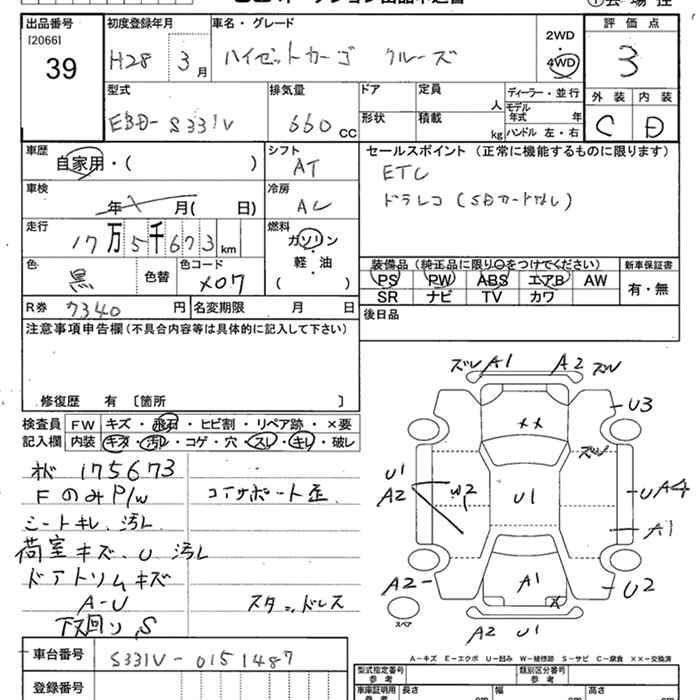 出品番号 初度登録年月 車名・グレード 評価点
[2066]
39
H28 3月 ハイゼットカーゴ クルーズ 2WD 4WD 3
型式 排気量 ドア 定員 ディーラー・並行 外装 内装
EBD-S331V 660cc 人 モデル年式 年 C D
形状 積載 kg ハンドル 左・右
車歴 シフト セールスポイント (正常に機能するものに限ります)
自家用・( ) AT ETC
車検 冷房 ドラレコ(SDカードなし)
年 月( 日) AC
走行 燃料
17万5千673km ガソリン
色 色替 色コード 軽・油 装備品(純正品に限り○をつけてください) 新車保証書
黒 X07 ( ) PS PW ABS エアB AW 有・無
SR ナビ TV カワ
R券 7340円 名変期限 月 日 後日品
注意事項申告欄(不具合内容等は具体的に記入して下さい)
修復歴 有 [箇所 ]
検査員 FW キズ・飛石・ヒビ割・リペア跡・×要
記入欄 内装 キズ・汚レ・コゲ・穴・スレ・キレ・破レ
175673
Fのみ P/W コアサポート歪
シートキレ、汚レ
荷室キズ、U、汚レ
ドアトリムキズ
A-U スタッドレス
下回り、S
ズレ A1 A2 ズレ
U3
××
ズレ
U1
A2 W2 U1 UA4
A1
A2 A1 U2
×
スペア
A2 U1
A-キズ E-エクボ U-凹み W-補修跡 S-サビ C-腐食 ××-交換済
車台番号 S331V-0151487
型式指定番号 参考 類別区分番号 参考
登録番号 車庫証明用 参考 長さ cm 幅 cm 高さ cm